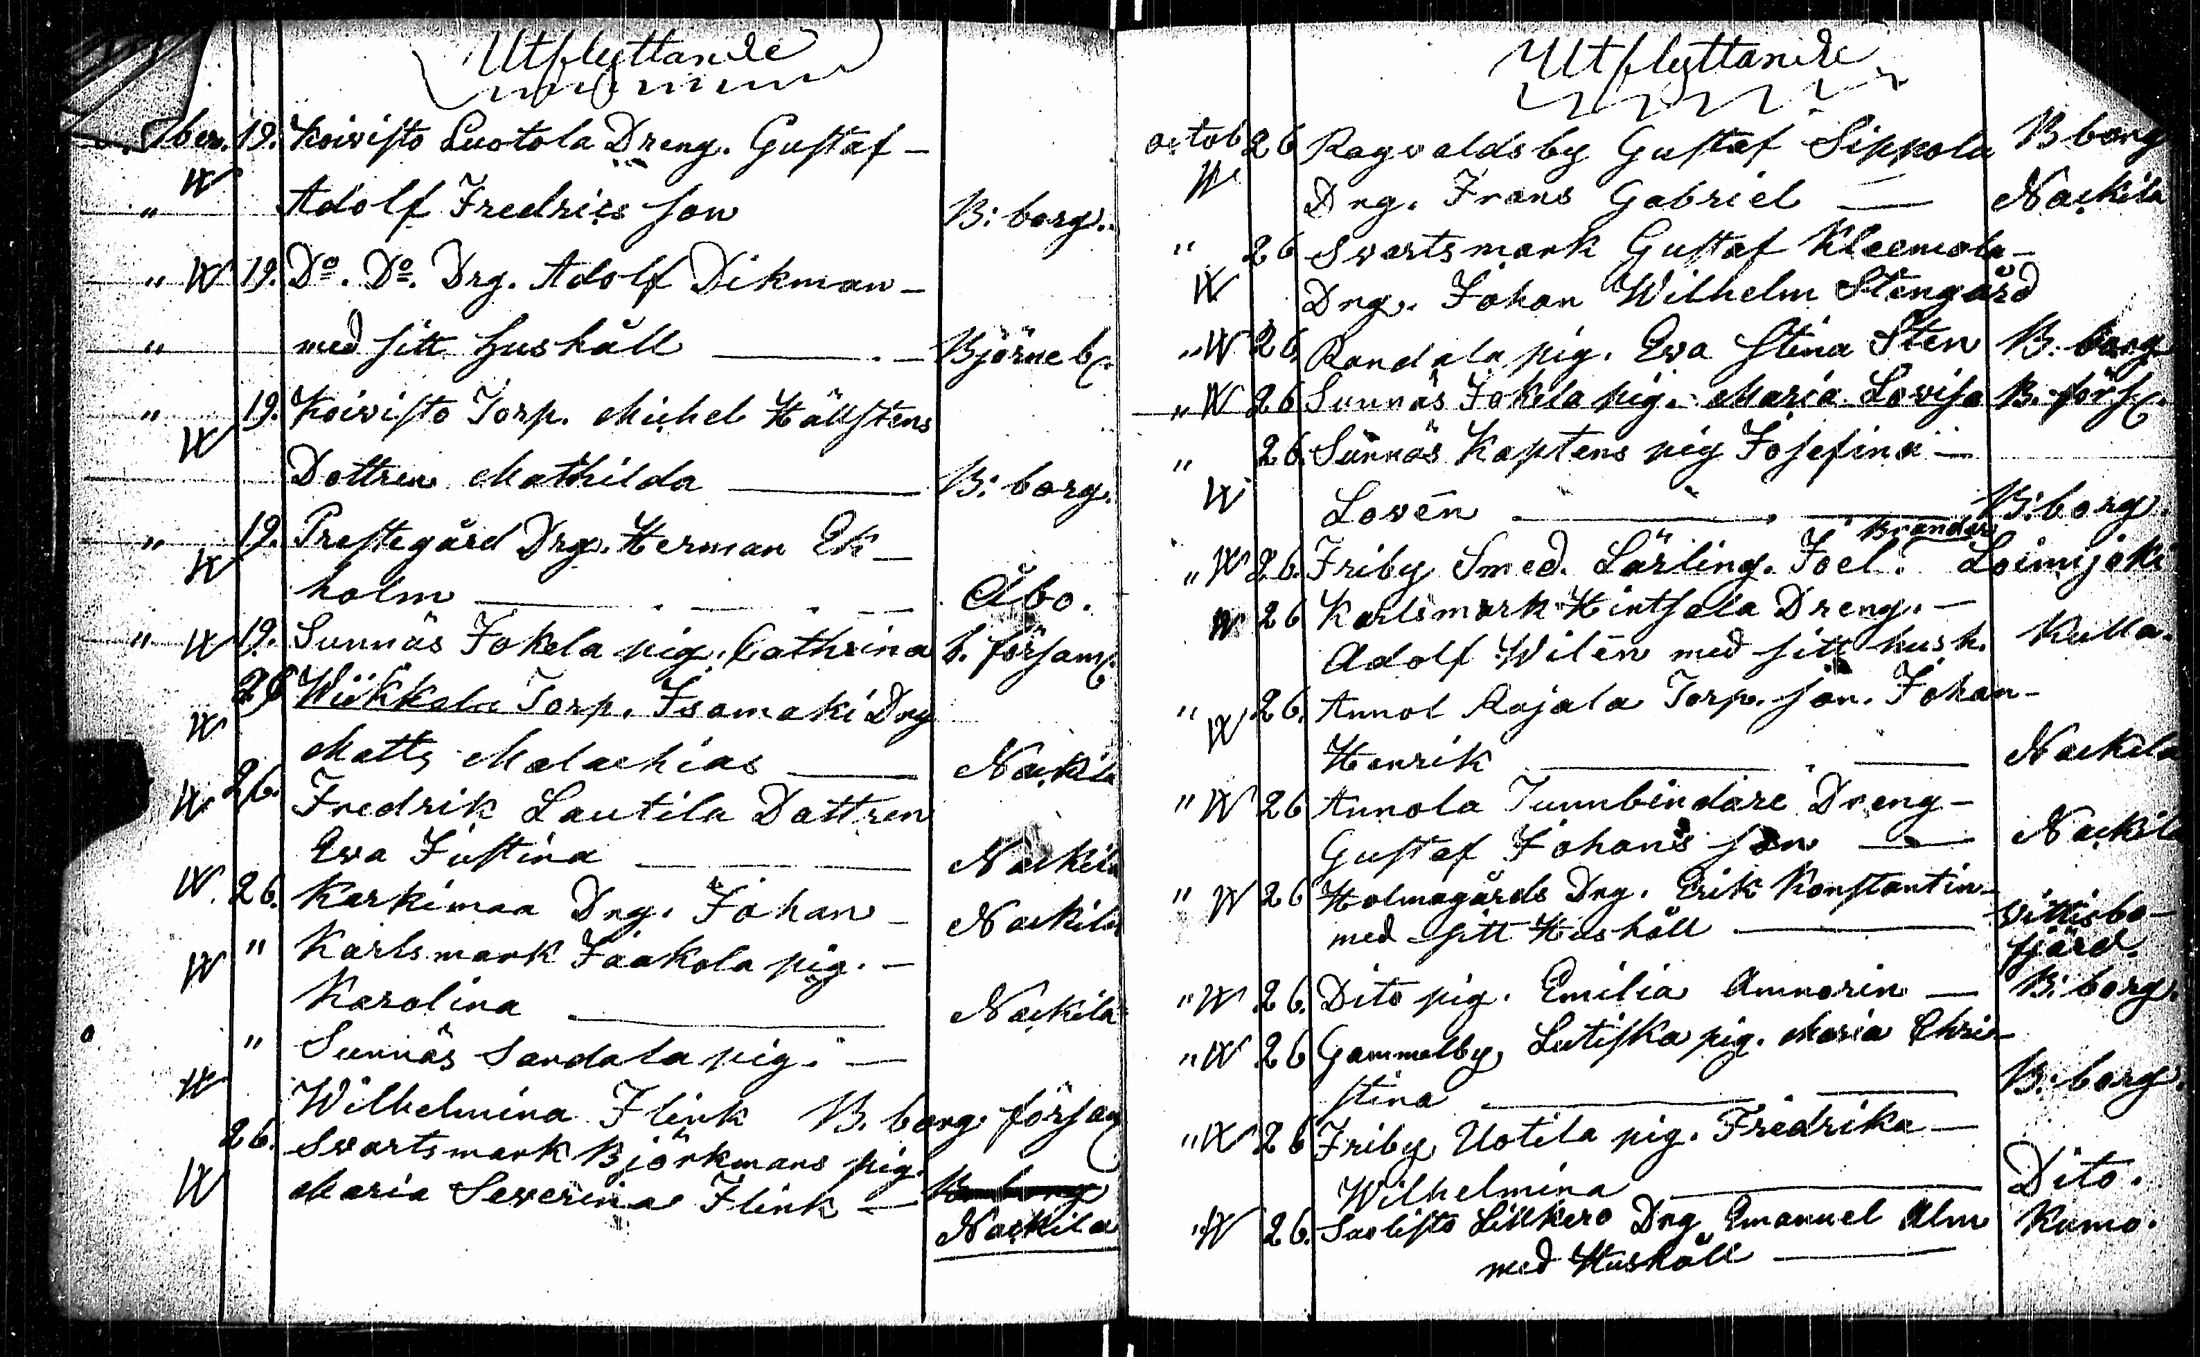 Utflyttande
ber. 19. Koivisto Luotola Dreng. Gustaf –
" Adolf Fredrics son B: borg.
" 19. Do. Do. Drg. Adolf Dikman –
" med sitt Hushåll — Björneb.
" 19. Koivisto Torp. Michel Hällstens
Dottren Mathilda — B: borg.
" 19. Prestegård Drg. Herman Ek–
holm — Åbo.
" 19. Sunnäs Jokela pig. Cathrina b. församl.
26 Wiikkala Torp. Isomaki Drg
Matts Malachias — Nackila
26. Fredrik Lautila Dottren
Eva Justina — Nackila
26. Karkimaa Drg. Johan – Nackila
" Karlsmark Jaakola pig. –
Karolina — Nackila
" Sunnäs Sandala pig. –
Wilhelmina Flink B. borg försam
26. Svartsmark Björkmans pig.
Maria Severina Flink –
Nackila
Utflyttande
octob 26 Ragvaldsby Gustaf Sippola B borg
Drg. Frans Gabriel — Nackila
" 26 Svartsmark Gustaf Kleemola –
Drg. Johan Wilhelm Stengård
" 26. Randala pig. Eva Stina Sten B: borg
" 26 Sunnäs Jokela pig. Maria Lovisa B. förs.
" 26. Sunnäs Kaptens pig Josefina –
Lovēn — B: borg.
Brander
" 26. Friby Smed. Lärling. Joel. Loimijoki
26 Karlsmark Hintsala Dreng. –
Adolf Wilēn med sitt hush. Kulla.
" 26. Annol Rajala Torp. son. Johan –
Henrik — Nackila
" 26 Annola Tunnbindare Dreng –
Gustaf Johans son — Nackila
" 26 Holmagårds Drg. Erik Konstantin –
med sitt Hushåll — Sittisbo–
fjärd.
" 26. Dito pig. Emilia Amnorin — B: borg.
" 26 Gammelby Lutiska pig. Maria Chri–
stina — B: borg.
" 26 Friby Uotila pig. Fredrika –
Wilhelmina — Dito.
" 26. Suolisto Lillkero Drg Emanuel Alm Kumo.
med Hushåll —